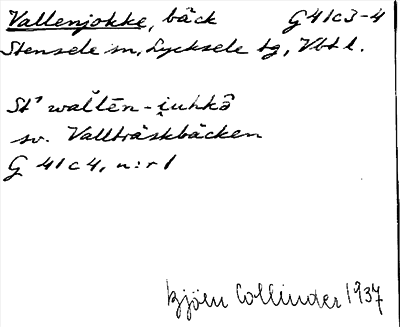 Vallenjokke, bäck G41c3-4
Stensele sn, Lycksele tg, Vbt l.
St³ wal̆tēn-i̯uhkâ
sv. Vallträskbäcken
G 41c4, n:r 1
Björn Collinder 1937